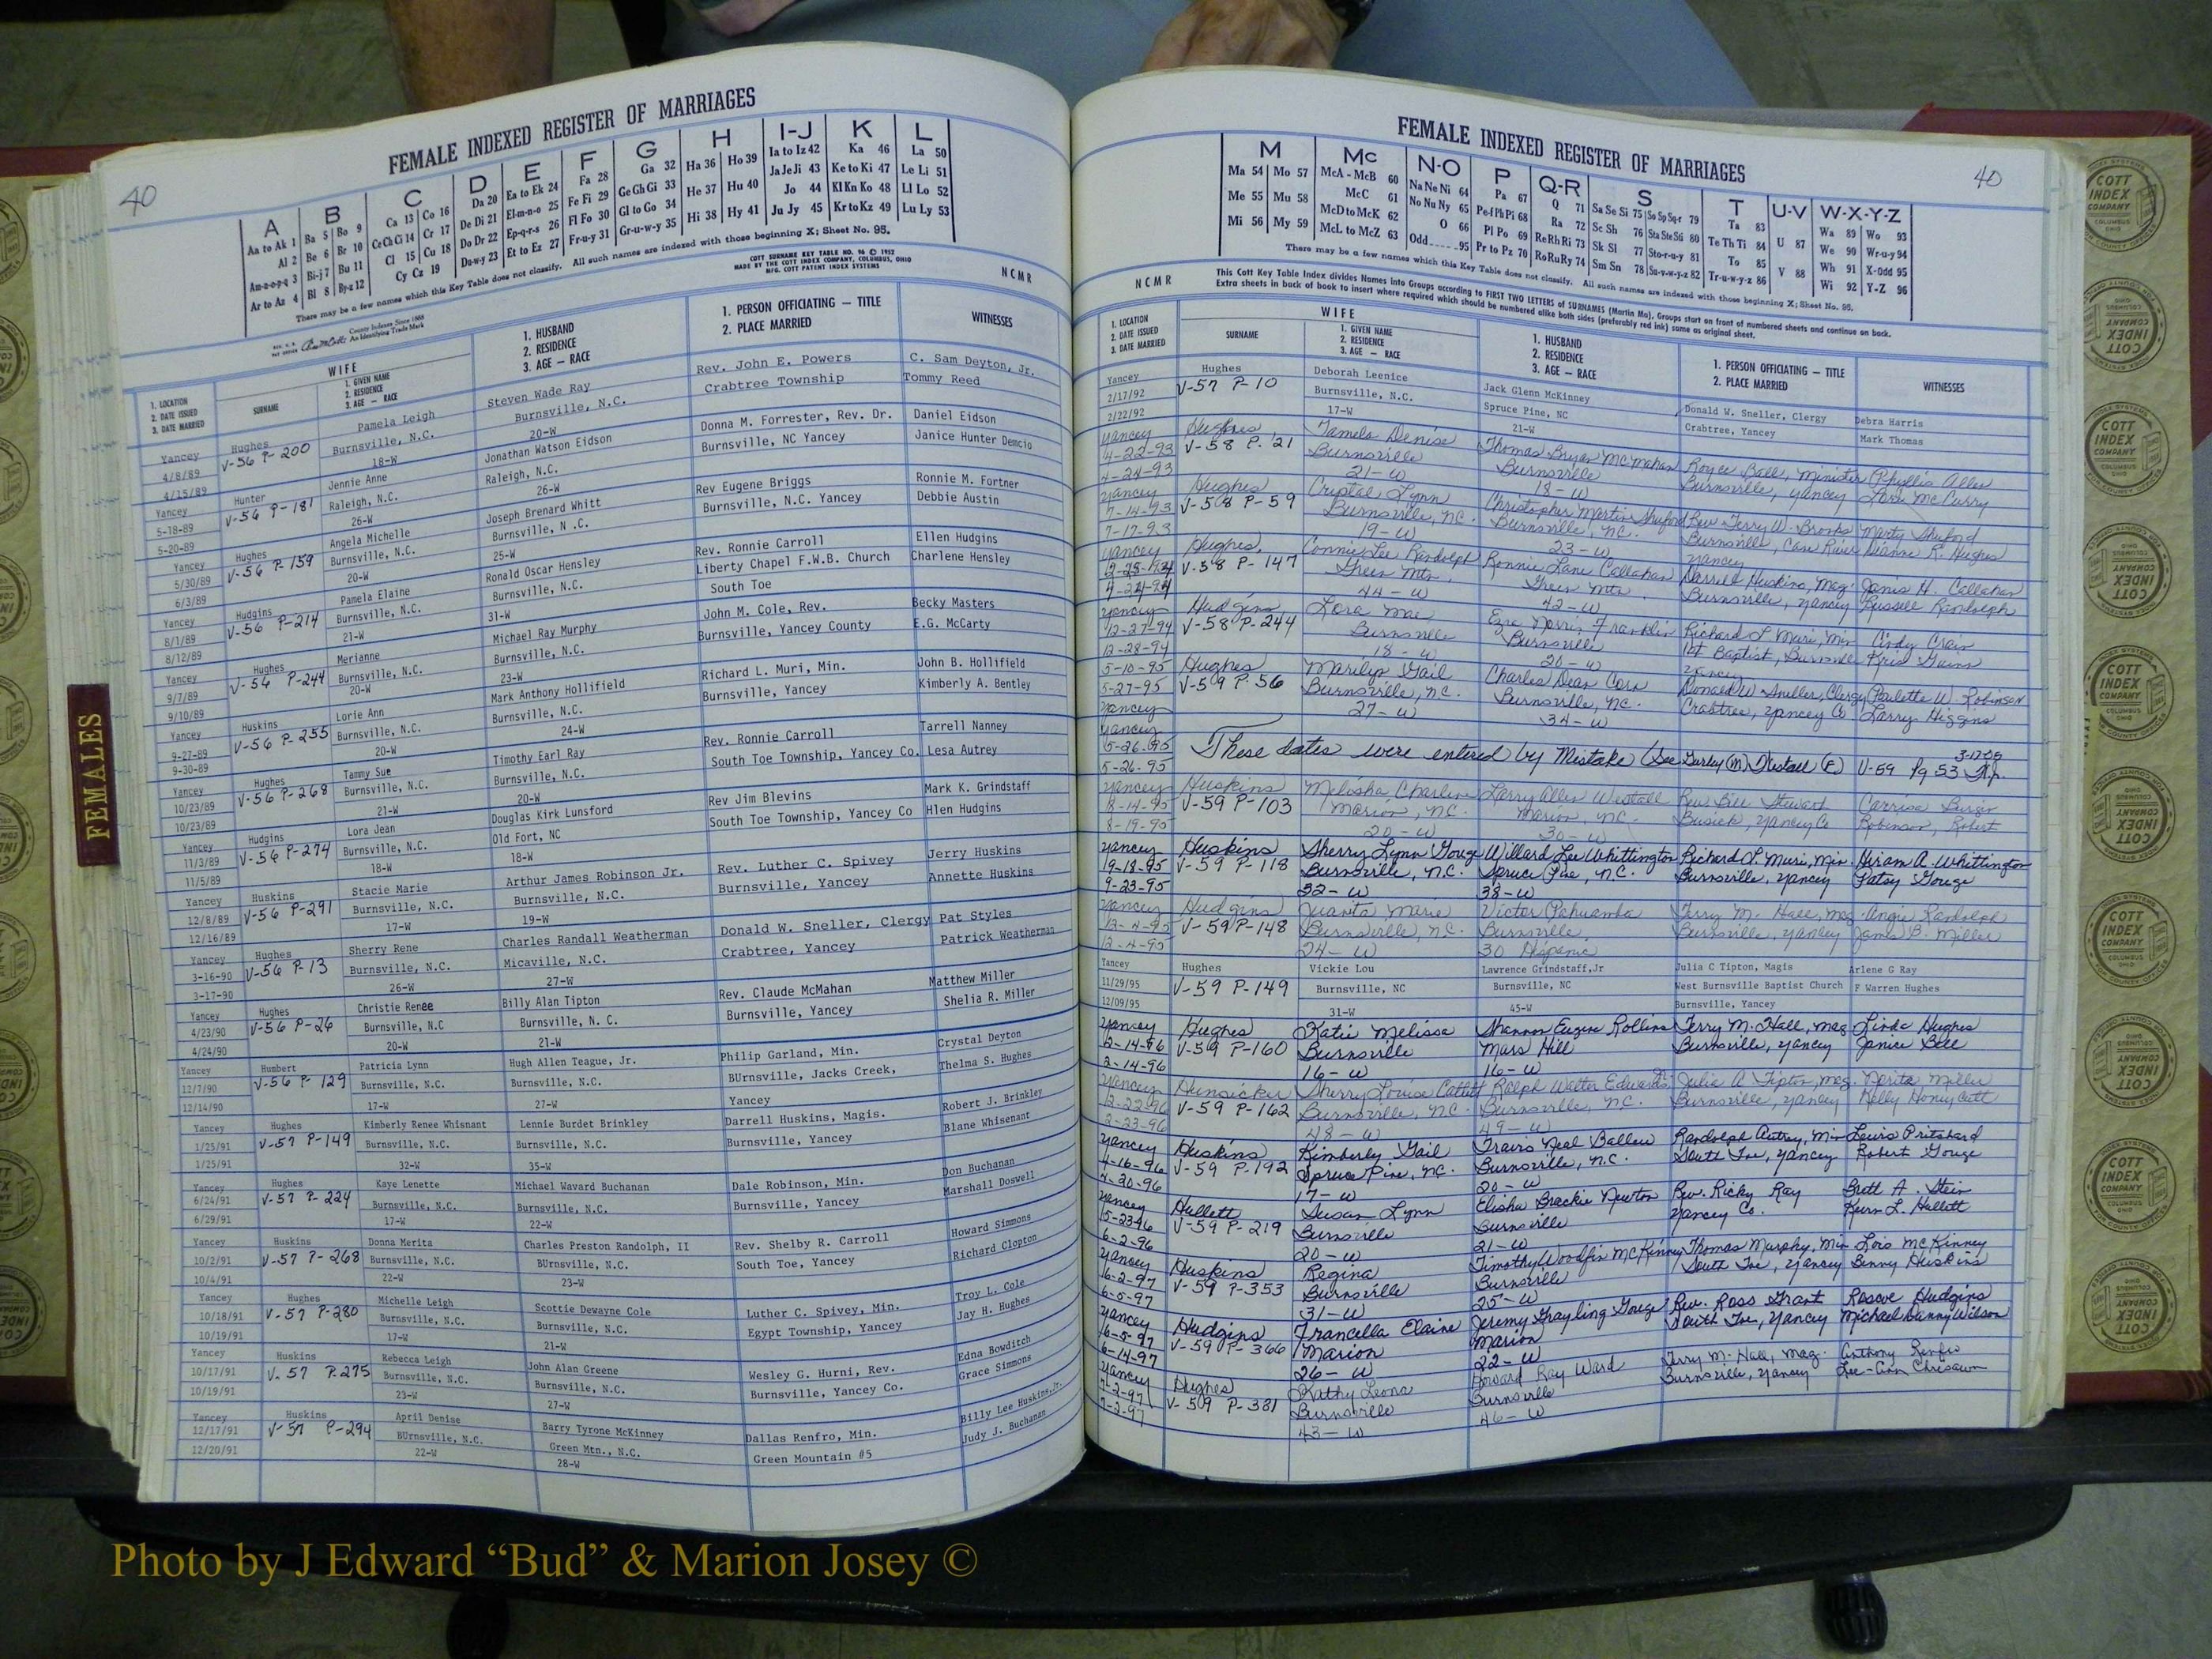 40
FEMALE INDEXED REGISTER OF MARRIAGES
A
Aa to Ak 1
Al 2
Am-n-o-p-q 3
Ar to Az 4
B
Ba 5 Bo 9
Be 6 Br 10
Bi-j 7 Bu 11
Bl 8 By-z 12
C
Ca 13 Co 16
Ce Ch Ci 14 Cr 17
Cl 15 Cu 18
Cy Cz 19
D
Da 20
De Di 21
Do Dr 22
Du-w-y 23
E
Ea to Ek 24
El-m-n-o 25
Ep-q-r-s 26
Et to Ez 27
F
Fa 28
Fe Fi 29
Fl Fo 30
Fr-u-y 31
G
Ga 32
Ge Gh Gi 33
Gl to Go 34
Gr-u-w-y 35
H
Ha 36 Ho 39
He 37 Hu 40
Hi 38 Hy 41
I-J
Ia to Iz 42
Ja Je Ji 43
Jo 44
Ju Jy 45
K
Ka 46
Ke to Ki 47
Kl Kn Ko 48
Kr to Kz 49
L
La 50
Le Li 51
Ll Lo 52
Lu Ly 53
There may be a few names which this Key Table does not classify. All such names are indexed with those beginning X; Sheet No. 95.
County Indexes Since 1888
An Identifying Trade Mark
COTT SURNAME KEY TABLE NO. 96 © 1952
MADE BY THE COTT INDEX COMPANY, COLUMBUS, OHIO
MFG. COTT PATENT INDEX SYSTEMS
NCMR
1. LOCATION
2. DATE ISSUED
3. DATE MARRIED
WIFE
SURNAME
1. GIVEN NAME
2. RESIDENCE
3. AGE — RACE
1. HUSBAND
2. RESIDENCE
3. AGE — RACE
1. PERSON OFFICIATING — TITLE
2. PLACE MARRIED
WITNESSES
Yancey Hughes Pamela Leigh Steven Wade Ray Rev. John E. Powers C. Sam Deyton, Jr.
4/8/89 V-56 P-200 Burnsville, N.C. Burnsville, N.C. Crabtree Township Tommy Reed
4/15/89 18-W 20-W
Yancey Hunter Jennie Anne Jonathan Watson Eidson Donna M. Forrester, Rev. Dr. Daniel Eidson
5-18-89 V-56 P-181 Raleigh, N.C. Raleigh, N.C. Burnsville, NC Yancey Janice Hunter Demcio
5-20-89 26-W 26-W
Yancey Hughes Angela Michelle Joseph Brenard Whitt Rev Eugene Briggs Ronnie M. Fortner
5/30/89 V-56 P-159 Burnsville, N.C. Burnsville, N.C. Burnsville, N.C. Yancey Debbie Austin
6/3/89 20-W 25-W
Yancey Hudgins Pamela Elaine Ronald Oscar Hensley Rev. Ronnie Carroll Ellen Hudgins
8/1/89 V-56 P-214 Burnsville, N.C. Burnsville, N.C. Liberty Chapel F.W.B. Church Charlene Hensley
8/12/89 21-W 31-W South Toe
Yancey Hughes Merianne Michael Ray Murphy John M. Cole, Rev. Becky Masters
9/7/89 V-56 P-244 Burnsville, N.C. Burnsville, N.C. Burnsville, Yancey County E.G. McCarty
9/10/89 20-W 23-W
Yancey Huskins Lorie Ann Mark Anthony Hollifield Richard L. Muri, Min. John B. Hollifield
9-27-89 V-56 P-255 Burnsville, N.C. Burnsville, N.C. Burnsville, Yancey Kimberly A. Bentley
9-30-89 20-W 24-W
Yancey Hughes Tammy Sue Timothy Earl Ray Rev. Ronnie Carroll Tarrell Nanney
10/23/89 V-56 P-268 Burnsville, N.C. Burnsville, N.C. South Toe Township, Yancey Co. Lesa Autrey
10/23/89 21-W 20-W
Yancey Hudgins Lora Jean Douglas Kirk Lunsford Rev Jim Blevins Mark K. Grindstaff
11/3/89 V-56 P-274 Burnsville, N.C. Old Fort, NC South Toe Township, Yancey Co Hlen Hudgins
11/5/89 18-W 18-W
Yancey Huskins Stacie Marie Arthur James Robinson Jr. Rev. Luther C. Spivey Jerry Huskins
12/8/89 V-56 P-291 Burnsville, N.C. Burnsville, N.C. Burnsville, Yancey Annette Huskins
12/16/89 17-W 19-W
Yancey Hughes Sherry Rene Charles Randall Weatherman Donald W. Sneller, Clergy Pat Styles
3-16-90 V-56 P-13 Burnsville, N.C. Micaville, N.C. Crabtree, Yancey Patrick Weatherman
3-17-90 26-W 27-W
Yancey Hughes Christie Renee Billy Alan Tipton Rev. Claude McMahan Matthew Miller
4/23/90 V-56 P-26 Burnsville, N.C Burnsville, N. C. Burnsville, Yancey Shelia R. Miller
4/24/90 20-W 21-W
Yancey Humbert Patricia Lynn Hugh Allen Teague, Jr. Philip Garland, Min. Crystal Deyton
12/7/90 V-56 P-129 Burnsville, N.C. Burnsville, N.C. BUrnsville, Jacks Creek, Thelma S. Hughes
12/14/90 17-W 27-W Yancey
Yancey Hughes Kimberly Renee Whisnant Lennie Burdet Brinkley Darrell Huskins, Magis. Robert J. Brinkley
1/25/91 V-57 P-149 Burnsville, N.C. Burnsville, N.C. Burnsville, Yancey Blane Whisenant
1/25/91 32-W 35-W
Yancey Hughes Kaye Lenette Michael Wavard Buchanan Dale Robinson, Min. Don Buchanan
6/24/91 V-57 P-224 Burnsville, N.C. Burnsville, N.C. Burnsville, Yancey Marshall Doswell
6/29/91 17-W 22-W
Yancey Huskins Donna Merita Charles Preston Randolph, II Rev. Shelby R. Carroll Howard Simmons
10/2/91 V-57 P-268 Burnsville, N.C. BUrnsville, N.C. South Toe, Yancey Richard Clopton
10/4/91 22-W 23-W
Yancey Hughes Michelle Leigh Scottie Dewayne Cole Luther C. Spivey, Min. Troy L. Cole
10/18/91 V-57 P-280 Burnsville, N.C. Burnsville, N.C. Egypt Township, Yancey Jay H. Hughes
10/19/91 17-W 21-W
Yancey Huskins Rebecca Leigh John Alan Greene Wesley G. Hurni, Rev. Edna Bowditch
10/17/91 V-57 P-275 Burnsville, N.C. Burnsville, N.C. Burnsville, Yancey Co. Grace Simmons
10/19/91 23-W 27-W
Yancey Huskins April Denise Barry Tyrone McKinney Dallas Renfro, Min. Billy Lee Huskins, Jr.
12/17/91 V-57 P-294 BUrnsville, N.C. Green Mtn., N.C. Green Mountain #5 Judy J. Buchanan
12/20/91 22-W 28-W
FEMALES
FEMALE INDEXED REGISTER OF MARRIAGES
40
M
Ma 54 Mo 57
Me 55 Mu 58
Mi 56 My 59
Mc
McA - McB 60
McC 61
McD to McK 62
McL to McZ 63
N-O
Na Ne Ni 64
No Nu Ny 65
O 66
Odd 95
P
Pa 67
Pe-f Ph Pi 68
Pl Po 69
Pr to Pz 70
Q-R
Q 71
Ra 72
Re Rh Ri 73
Ro Ru Ry 74
S
Sa Se Si 75 So Sp Sq-r 79
Sc Sh 76 Sta Ste Sti 80
Sk Sl 77 Sto-r-u-y 81
Sm Sn 78 Su-v-w-y-z 82
T
Ta 83
Te Th Ti 84
To 85
Tr-u-w-y-z 86
U-V
U 87
V 88
W-X-Y-Z
Wa 89 Wo 93
We 90 Wr-u-y 94
Wh 91 X-Odd 95
Wi 92 Y-Z 96
There may be a few names which this Key Table does not classify. All such names are indexed with those beginning X; Sheet No. 95.
NCMR
This Cott Key Table Index divides Names into Groups according to FIRST TWO LETTERS of SURNAMES (Martin Ma), Groups start on front of numbered sheets and continue on back.
Extra sheets in back of book to insert where required which should be numbered alike both sides (preferably red ink) same as original sheet.
1. LOCATION
2. DATE ISSUED
3. DATE MARRIED
WIFE
SURNAME
1. GIVEN NAME
2. RESIDENCE
3. AGE — RACE
1. HUSBAND
2. RESIDENCE
3. AGE — RACE
1. PERSON OFFICIATING — TITLE
2. PLACE MARRIED
WITNESSES
Yancey Hughes Deborah Leenice Jack Glenn McKinney Donald W. Sneller, Clergy Debra Harris
2/17/92 V-57 P-10 Burnsville, N.C. Spruce Pine, NC Crabtree, Yancey Mark Thomas
2/22/92 17-W 21-W
Yancey Hughes Tamela Denise Thomas Bryan McMahan Royce Ball, Minister Phyllis Allen
4-22-93 V-58 P-21 Burnsville Burnsville Burnsville, Yancey Lori McCurry
4-24-93 21-W 18-W
Yancey Hughes Crystal Lynn Christopher Martin Shuford Rev Terry W. Brooks Marty Shuford
7-14-93 V-58 P-59 Burnsville, NC. Burnsville, NC. Burnsville, Cane River Dianne R. Hughes
7-17-93 19-W 23-W Yancey
Yancey Hughes Connie Lee Randolph Ronnie Lane Callahan Darrell Huskins, Mag. Janis H. Callahan
V-58 P-147 Green Mtn. Green Mtn. Burnsville, Yancey Russell Randolph
44-W 42-W
Yancey Hudgins Lora Mae Ezra Norris Franklin Richard L Muri, Min Cindy Crain
12-27-94 V-58 P-244 Burnsville Burnsville 1st Baptist, Burnsville
12-28-94 18-W 20-W Yancey
5-10-95 Hughes Marilyn Gail Charles Dean Donald W. Sneller, Clergy Paulette W. Robinson
5-27-95 V-59 P-56 Burnsville, NC. Burnsville, NC. Crabtree, Yancey Co Larry Higgins
Yancey 27-W 34-W
Yancey
5-26-95 These dates were entered by Mistake (See (M) (F) V-59 Pg 53
5-26-95
Yancey Huskins Melisha Charlene Larry Allen Westall Rev Bill Stewart Carrisa
8-14-95 V-59 P-103 Marion, NC. Marion, NC. Busick, Yancey Co Robinson, Robert
8-19-95 20-W 30-W
Yancey Huskins Sherry Lynn Gouge Willard Lee Whittington Richard L. Muri, Min. Hiram A. Whittington
9-18-95 V-59 P-118 Burnsville, N.C. Spruce Pine, N.C. Burnsville, Yancey Patsy Gouge
9-23-95 32-W 38-W
Yancey Hudgins Juanita Marie Victor Pahuamba Terry M. Hall, Mag. Angie Randolph
12-4-95 V-59 P-148 Burnsville, N.C. Burnsville Burnsville, Yancey James B. Miller
12-4-95 24-W 30 Hispanic
Yancey Hughes Vickie Lou Lawrence Grindstaff,Jr Julia C Tipton, Magis Arlene G Ray
11/29/95 V-59 P-149 Burnsville, NC Burnsville, NC West Burnsville Baptist Church F Warren Hughes
12/09/95 31-W 45-W Burnsville, Yancey
Yancey Hughes Katie Melissa Shannon Eugene Rollins Terry M. Hall, Mag Linda Hughes
2-14-96 V-59 P-160 Burnsville Mars Hill Burnsville, Yancey Janice Bell
2-14-96 16-W 16-W
Yancey Hunsicker Sherry Louise Catlett Ralph Walter Edwards Julia A Tipton, Mag. Norita Miller
2-22-96 V-59 P-162 Burnsville, N.C. Burnsville, N.C. Burnsville, Yancey Kelly Honeycutt
2-23-96 48-W 49-W
Yancey Huskins Kimberly Gail Travis Neal Ballew Randolph Autrey, Min Lewis Pritchard
4-16-96 V-59 P-192 Spruce Pine, NC. Burnsville, N.C. South Toe, Yancey Robert Gouge
4-30-96 17-W 20-W
Yancey Hullett Susan Lynn Elisha Brackie Newton Rev. Ricky Ray Brett A. Stein
5-23-96 V-59 P-219 Burnsville Burnsville Yancey Co. Kern L. Hullett
6-2-96 20-W 21-W
Yancey Huskins Regina Timothy Woodfin McKinney Thomas Murphy, Min Lois McKinney
6-2-97 V-59 P-353 Burnsville Burnsville South Toe, Yancey Benny Huskins
6-5-97 31-W 25-W
Yancey Hudgins Francella Elaine Jeremy Grayling Gouge Rev. Ross Grant Roscoe Hudgins
6-5-97 V-59 P-366 Marion Marion South Toe, Yancey Michael Danny Wilson
6-14-97 26-W 22-W
Yancey Hughes Kathy Leona Howard Ray Ward Terry M. Hall, Mag. Anthony Renfro
7-2-97 V-59 P-381 Burnsville Burnsville Burnsville, Yancey Lee-Ann Chrisawn
7-2-97 43-W 46-W
COTT INDEX COMPANY
COLUMBUS OHIO
INDEX SYSTEMS
FOR COUNTY OFFICES
Photo by J Edward “Bud” & Marion Josey ©